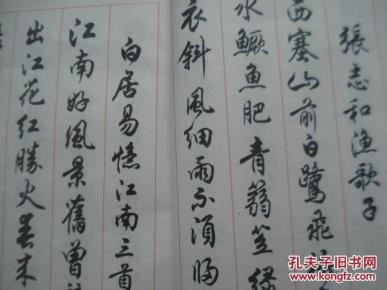 張志和漁歌子
西塞山前白鷺飛
水鱖魚肥青篛笠綠
衣斜風細雨不須歸
白居易憶江南三首
江南好風景舊曾
出江花紅勝火春來
孔夫子旧书网